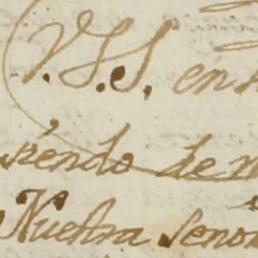 V.S.S. en
siendo de
Nuestra Señor